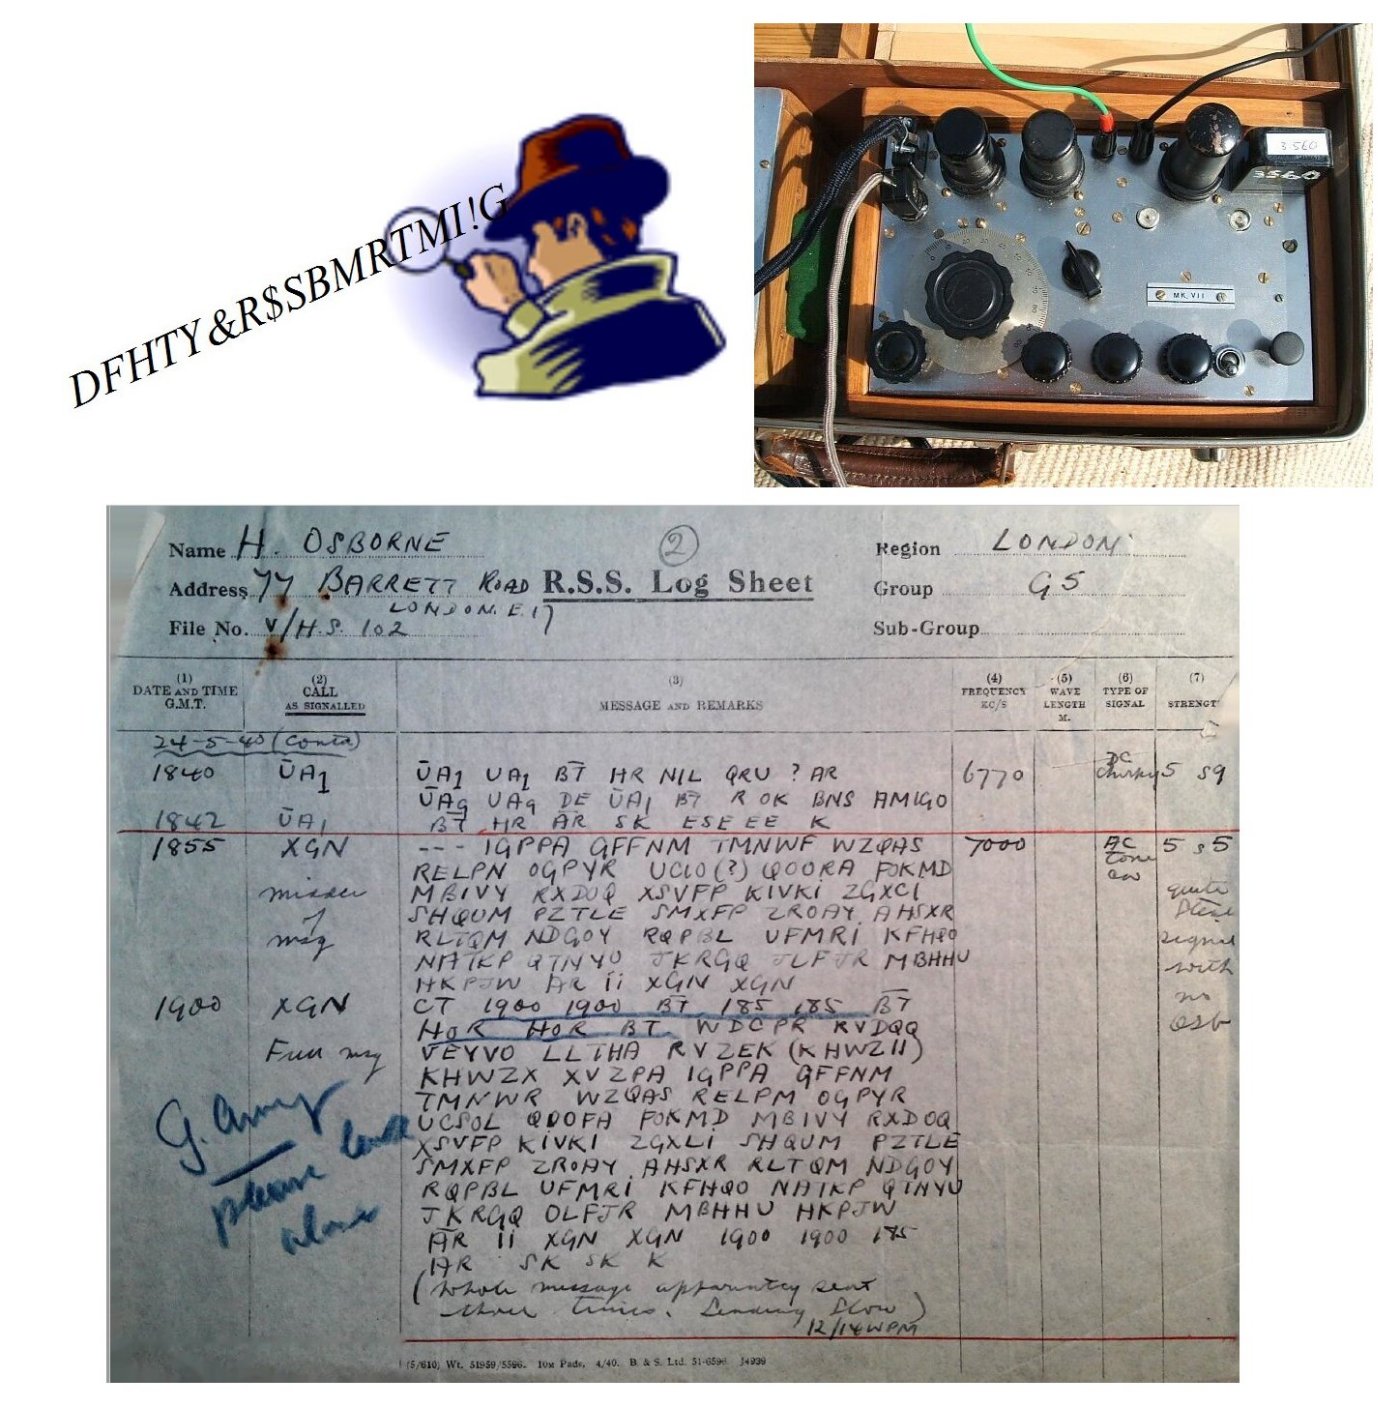 DFHTY&R$SSBMRTMI!G
3·560
3560
MK. VII
Name H. OSBORNE
2
Region LONDON
Address 77 BARRETT ROAD
R.S.S. Log Sheet
Group G5
LONDON. E. 17
File No. V/H.S. 102
Sub-Group
(1) DATE AND TIME G.M.T.
(2) CALL AS SIGNALLED
(3) MESSAGE AND REMARKS
(4) FREQUENCY KC/S
(5) WAVE LENGTH M.
(6) TYPE OF SIGNAL
(7) STRENGT
24-5-40 (Contd)
1840 ŪA1 ŪA1 UA1 B̅T̅ HR NIL QRU ? AR 6770 DC Chirpy 5 S9
ŪA9 UA9 DE ŪA1 BT R OK BNS AMIGO
1842 ŪA1 B̅T̅ HR A̅R̅ SK ESE EE K
1855 XGN --- IGPPA GFFNM TMNWF WZQAS 7000 AC Tone CW 5 S5
RELPN OGPYR UCIO(?) QOORA FOKMD
MBIVY RXDOQ XSVFP KIVKI ZGXCI
of SHQUM PZTLE SMXFP ZROAY AHSXR
msg RLTQM NDGOY RQPBL UFMRI KFHQO signal
NATKP QTNYU JKRGQ JLFJR MBHHU with
HKPJW AR ii XGN XGN
1900 XGN CT 1900 1900 B̅T̅ 185 185 B̅T̅ no
HQR HQR BT WDCPR RVDQQ QSB
Full msg VEYVO LLTHA RVZEK (KHWZII)
KHWZX XVZPA IGPPA GFFNM
TMNWR WZQAS RELPM OGPYR
UCSOL QDOFA FOKMD MBIVY RXDOQ
XSVFP KIVKI ZGXLI SHQUM PZTLE
SMXFP ZROAY AHSXR RLTQM NDGOY
RQPBL UFMRI KFHQO NATKP QTNYU
JKRGQ OLFJR MBHHU HKPJW
A̅R̅ ii XGN XGN 1900 1900 185
AR SK SK K
(Whole message apparently sent
three times. Sending slow)
12/14 WPM
G. Army
please
alone
(5/610) Wt. 51959/5596. 10M Pads, 4/40. B. & S. Ltd. 51-6596. J4939